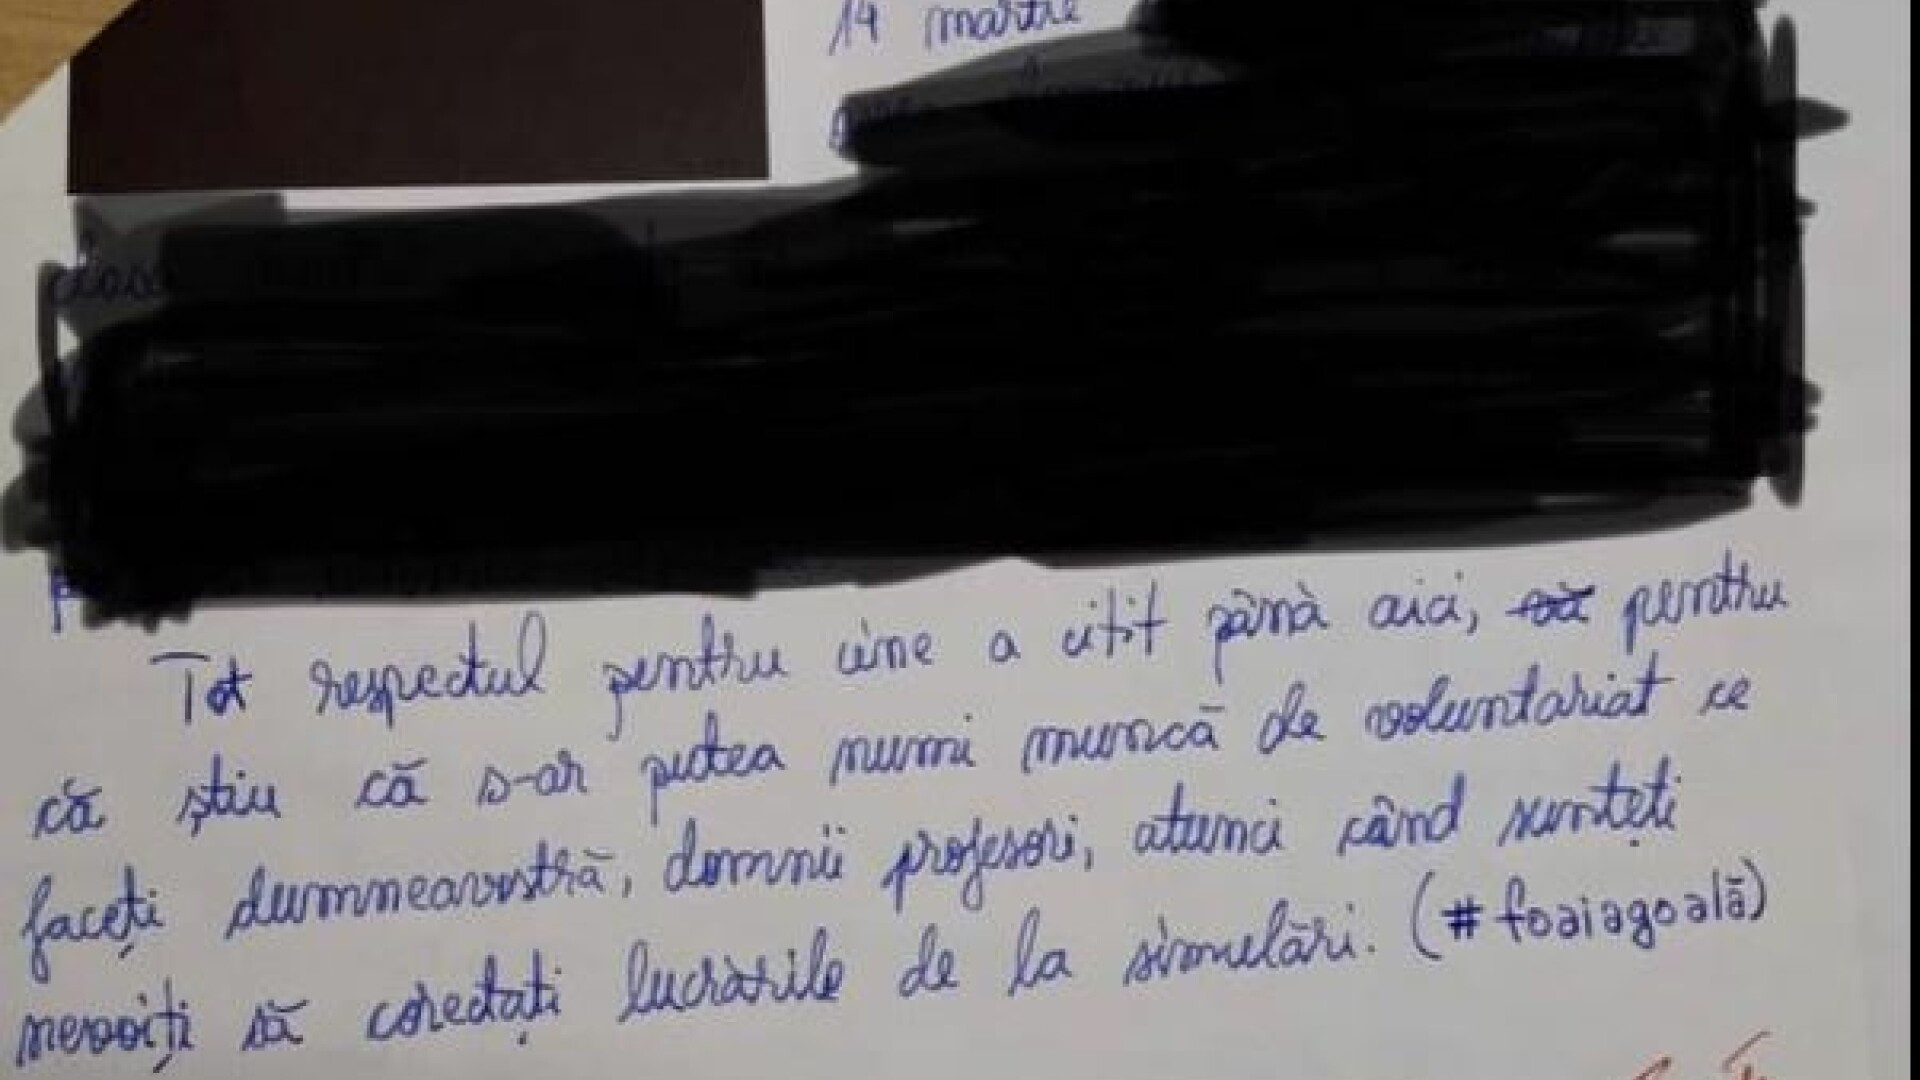 14 martie
Tot respectul pentru cine a citit până aici, pentru
că știu că s-ar putea numi muncă de voluntariat ce
faceți dumneavostră, domnii profesori, atunci când sunteți
nevoiți să corectați lucrările de la simulări. (#foaiagoală)